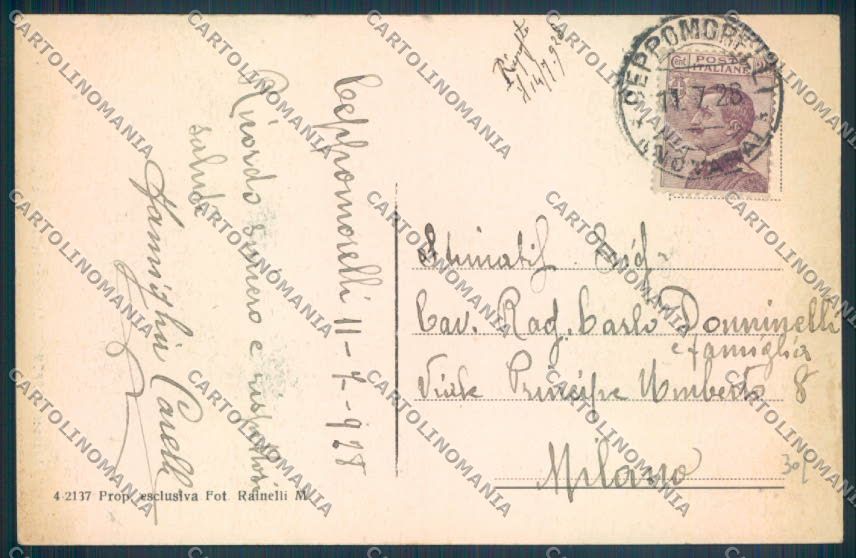 Ceppomorelli 11-7-928
Ricordo sincero e
saluti
Famiglia Carelli
4-2137 Prop. esclusiva Fot. Rainelli M.
14/7.928
CEPPOMORELLI
11.7.28
NOVARA
POSTE
ITALIANE
Stimatis. Sig.
Cav. Rag. Carlo Donninelli
e famiglia
Viale Principe Umberto 8
Milano
30/
CARTOLINOMANIA